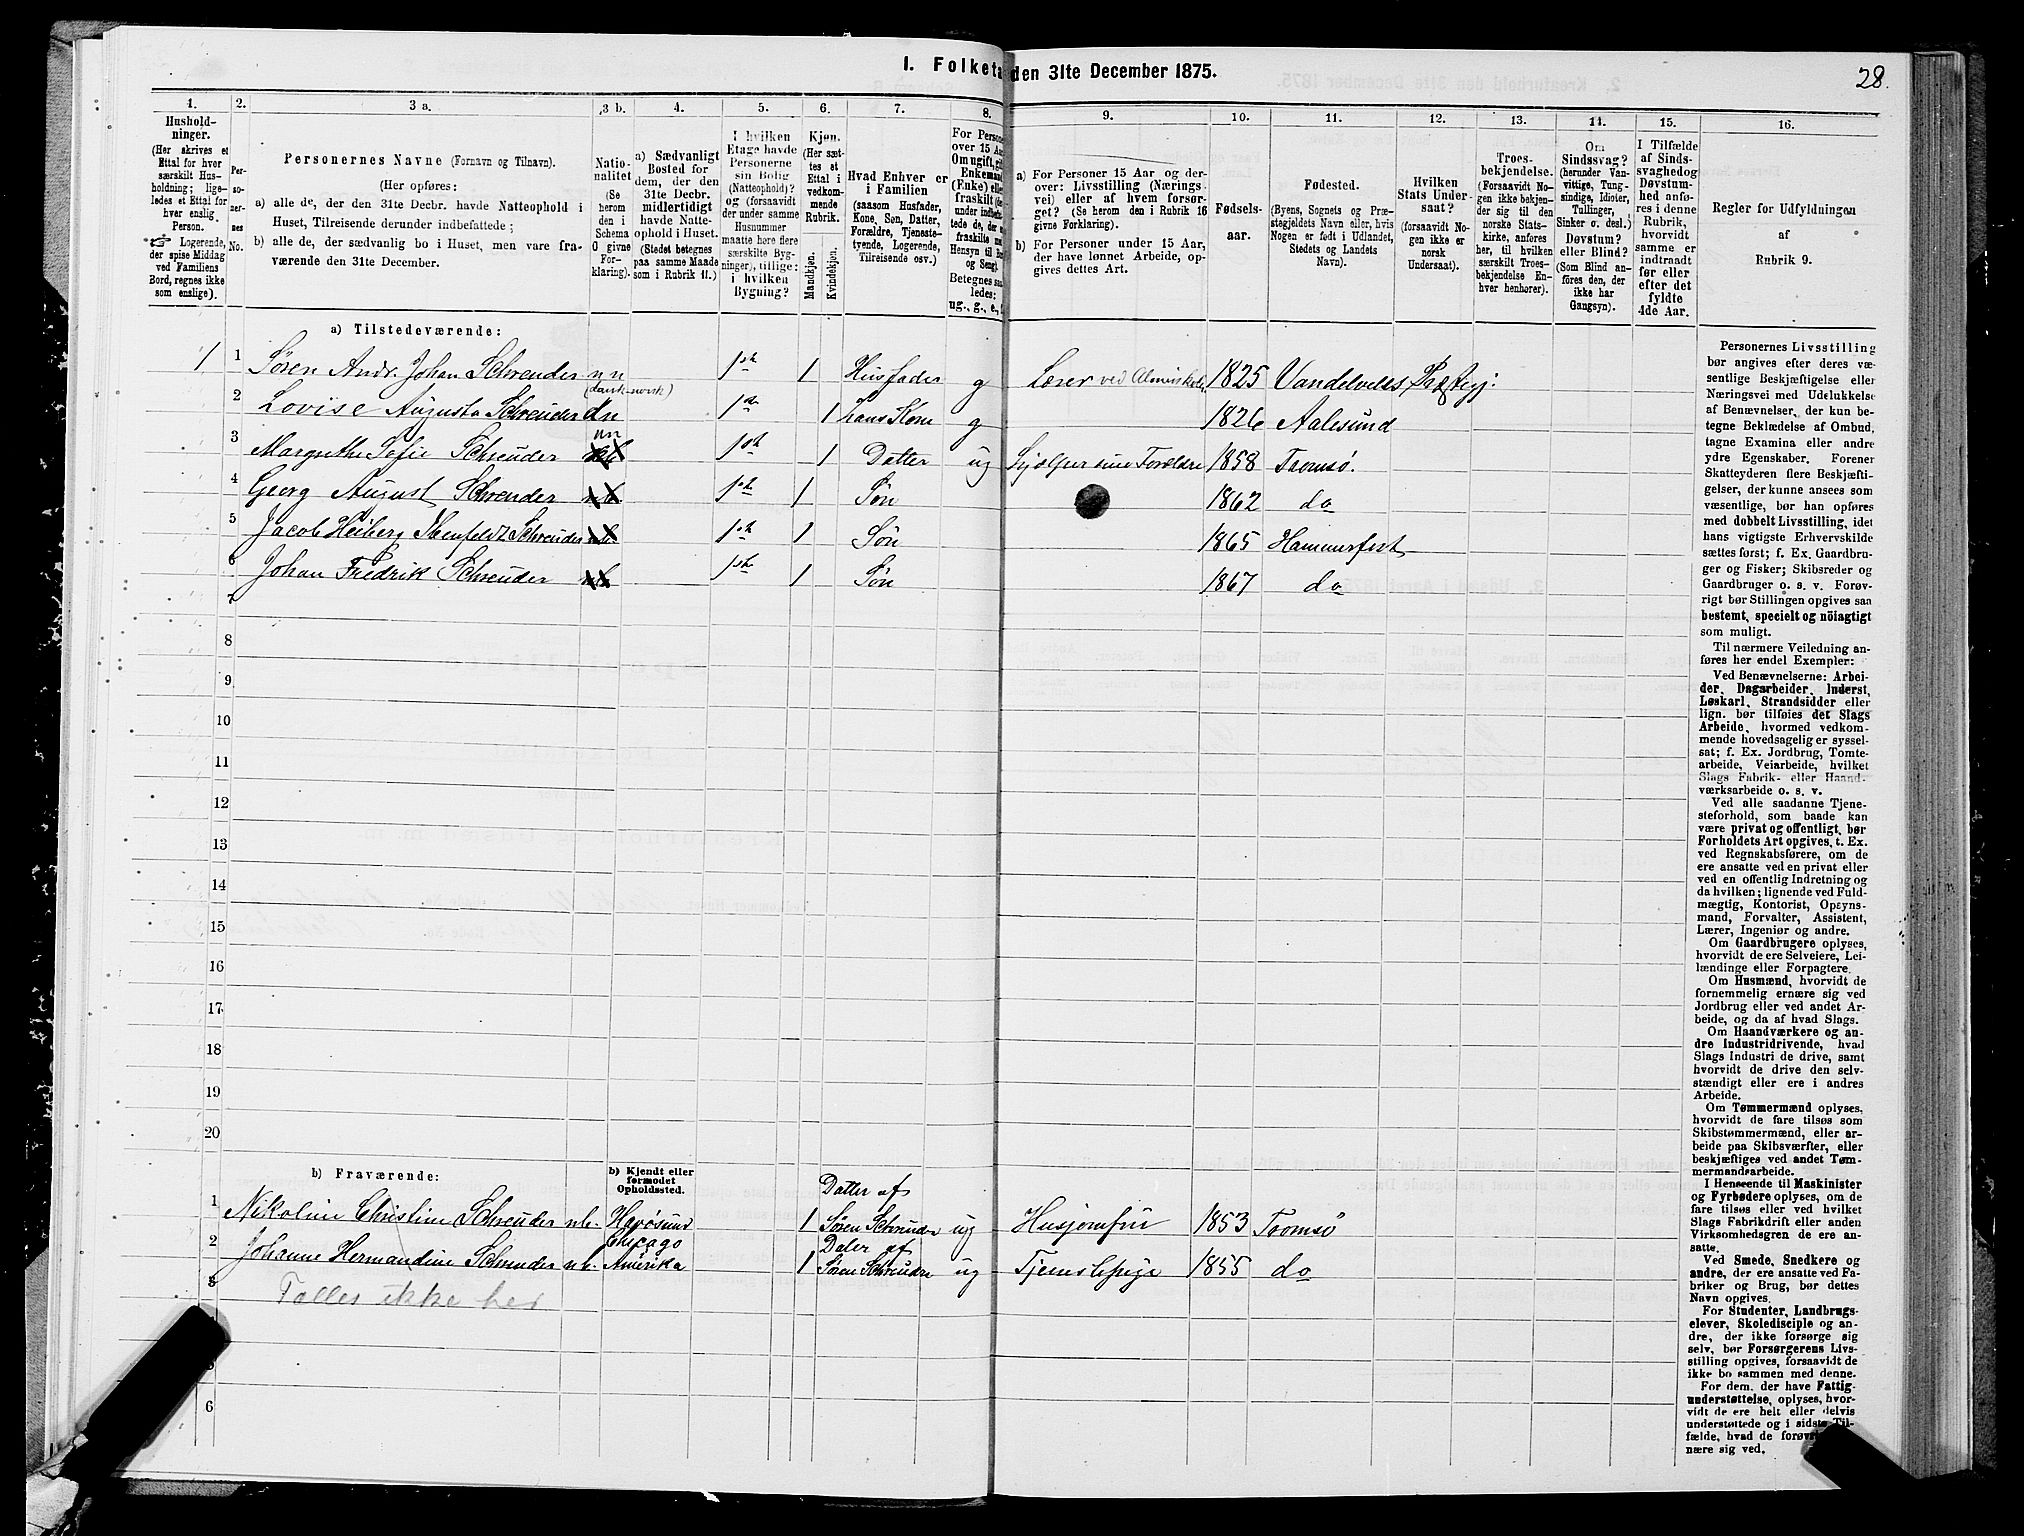 1. Folketæ
den 31te December 1875.
28.
1.
Hushold-
ninger.
(Her skrives et
Ettal for hver
særskilt Hus-
holdning; lige-
ledes et Ettal for
hver enslig
Person.
☞ Logerende,
der spise Middag
ved Familiens
Bord, regnes ikke
som enslige).
2.
Per-
so-
ner-
nes
No.
3 a.
Personernes Navne (Fornavn og Tilnavn).
(Her opføres:
a) alle de, der den 31te Decbr. havde Natteophold i
Huset, Tilreisende derunder indbefattede;
b) alle de, der sædvanlig bo i Huset, men vare fra-
værende den 31te December.
3 b.
Natio-
nalitet
(Se
herom
den i
Schema
O givne
For-
klaring).
4.
a) Sædvanligt
Bosted for
dem, der den
31te Decbr.
midlertidigt
havde Natte-
ophold i Huset.
(Stedet betegnes
paa samme Maade
som i Rubrik 11.)
5.
I hvilken
Etage havde
Personerne
sin Bolig
(Natteophold)?
og (forsaavidt
der under samme
Husnummer
maatte høre flere
særskilte Byg-
ninger), tillige:
i hvilken
Bygning?
6.
Kjøn.
(Her sæt-
tes et
Ettal i
vedkom-
mende
Rubrik.
Mandkjøn.
Kvindekjøn.
7.
Hvad Enhver er
i Familien
(saasom Husfader,
Kone, Søn, Datter,
Forældre, Tjeneste-
tyende, Logerende,
Tilreisende osv.)
8.
For Person
over 15 Aar
Om ugift, gif
Enkemand
(Enke) elle
fraskilt
Betegnes saa
ledes:
ug., g., e.,
9.
a) For Personer 15 Aar og der-
over: Livsstilling (Nærings-
vei) eller af hvem forsør-
get? (Se herom den i Rubrik 16
givne Forklaring).
b) For Personer under 15 Aar,
der have lønnet Arbeide, op-
gives dettes Art.
10.
Fødsels-
aar.
11.
Fødested.
(Byens, Sognets og Præ-
stegjeldets Navn eller, hvis
Nogen er født i Udlandet,
Stedets og Landets
Navn).
12.
Hvilken
Stats Under-
saat?
(forsaavidt No-
gen ikke er
norsk
Undersaat).
13.
Troes-
bekjendelse.
(Forsaavidt No-
gen ikke bekjen-
der sig til den
norske Stats-
kirke, anføres
her, til hvilken
særskilt Troes-
bekjendelse En-
hver henhører).
14.
Om
Sindssvag?
(herunder Van-
vittige, Tung-
sindige, Idioter,
Tullinger,
Sinker o. desl.)
Døvstum?
eller Blind?
(Som Blind an-
føres den, der
ikke har
Gangsyn).
15.
I Tilfælde
af Sinds-
svaghed og
Døvstum-
hed anfø-
res i denne
Rubrik,
hvorvidt
samme er
indtraadt
før eller
efter det
fyldte
4de Aar.
16.
Regler for Udfyldningen
af
Rubrik 9.
a) Tilstedeværende:
1 1 Søren Andr. Johan Schreuder nn 1ste 1 Husfader g Lærer ved Almueskole 1825 Vandelvens Præstegj:
(dansk-norsk)
2 Lovise Augusta Schreuder dn 1ste 1 hans Kone g 1826 Aalesund
nn
3 Margrethe Sofie Schreuder 1ste 1 Datter ug Hjælper sine Forældre 1858 Tromsø.
4 Georg August Schreuder nb 1ste 1 Søn 1862 do
5 Jacob Heiberg Schreuder nb 1ste 1 Søn 1865 Hammerfest
6 Johan Fredrik Schreuder nb 1ste 1 Søn 1867 do
7
8
9
10
11
12
13
14
15
16
17
18
19
20
b) Fraværende:
b) Kjendt eller
formodet
Opholdssted.
Datter af
1 Nikoline Christine Schreuder nb. Havøsund 1 Søren Schreuder ug Husjomfru 1853 Tromsø
Chicago Dater af
2 Johanne Hermandine Schreuder nb. Amerika 1 Søren Schreudre ug Tjenstepige 1855 do
3 Tælles ikke her
6
Personernes Livsstilling
bør angives efter deres væ-
sentlige Beskjæftigelse eller
Næringsvei med Udelukkelse
af Benævnelser, der kun be-
tegne Beklædelse af Ombud,
tagne Examina eller andre
ydre Egenskaber. Forener
Skatteyderen flere Beskjæfti-
gelser, der kunne ansees som
væsentlige, bør han opføres
med dobbelt Livsstilling, idet
hans vigtigste Erhvervskilde
sættes først; f. Ex. Gaardbru-
ger og Fisker; Skibsreder og
Gaardbruger o. s. v. Forøv-
rigt bør Stillingen opgives saa
bestemt, specielt og nöiagtigt
som muligt.
Til nærmere Veiledning an-
føres her endel Exempler:
Ved Benævnelserne: Arbei-
der, Dagarbeider, Inderst,
Løskarl, Strandsidder eller
lign. bør tilføies det Slags
Arbeide, hvormed vedkom-
mende hovedsagelig er syssel-
sat; f. Ex. Jordbrug, Tomte-
arbeide, Veiarbeide, hvilket
Slags Fabrik- eller Haand-
værksarbeide o. s. v.
Ved alle saadanne Tjene-
steforhold, som baade kan
være privat og offentligt, bør
Forholdets Art opgives, t. Ex.
ved Regnskabsførere, om de
ere ansatte ved en privat eller
ved en offentlig Indretning og
da hvilken; lignende ved Fuld-
mægtig, Kontorist, Opsyns-
mand, Forvalter, Assistent,
Lærer, Ingeniør og andre.
Om Gaardbrugere oplyses,
hvorvidt de ere Selveiere, Lei-
lændinge eller Forpagtere.
Om Husmænd, hvorvidt de
fornemmelig ernære sig ved
Jordbrug eller ved andet Ar-
beide, og da af hvad Slags.
Om Haandværkere og an-
dre Industridrivende, hvad
Slags Industri de drive, samt
hvorvidt de drive den selv-
stændigt eller ere i andres
Arbeide.
Om Tømmermænd oplyses,
hvorvidt de fare tilsøs som
Skibstømmermænd, eller ar-
beide paa Skibsværfter, eller
beskjæftiges ved andet Tøm-
mermandsarbeide.
I Henseende til Maskinister
og Fyrbødere oplyses, om de
fare tilsøs eller ved hvilket
Slags Fabrikdrift eller anden
Virksomhedsgren de ere an-
satte.
Ved Smede, Snedkere og
andre, der ere ansatte ved Fa-
briker og Brug, bør dettes
Navn opgives.
For Studenter, Landbrugs-
elever, Skoledisciple og an-
dre, der ikke forsørge sig
selv, bør Forsørgerens Livs-
stilling opgives, forsaavidt de
ikke bo sammen med denne.
For dem, der have Fattig-
understøttelse, oplyses, hvor-
vidt de ere helt eller delvis
understøttede og i sidste Til-
fælde, hvad de forøv
nære sig ved.